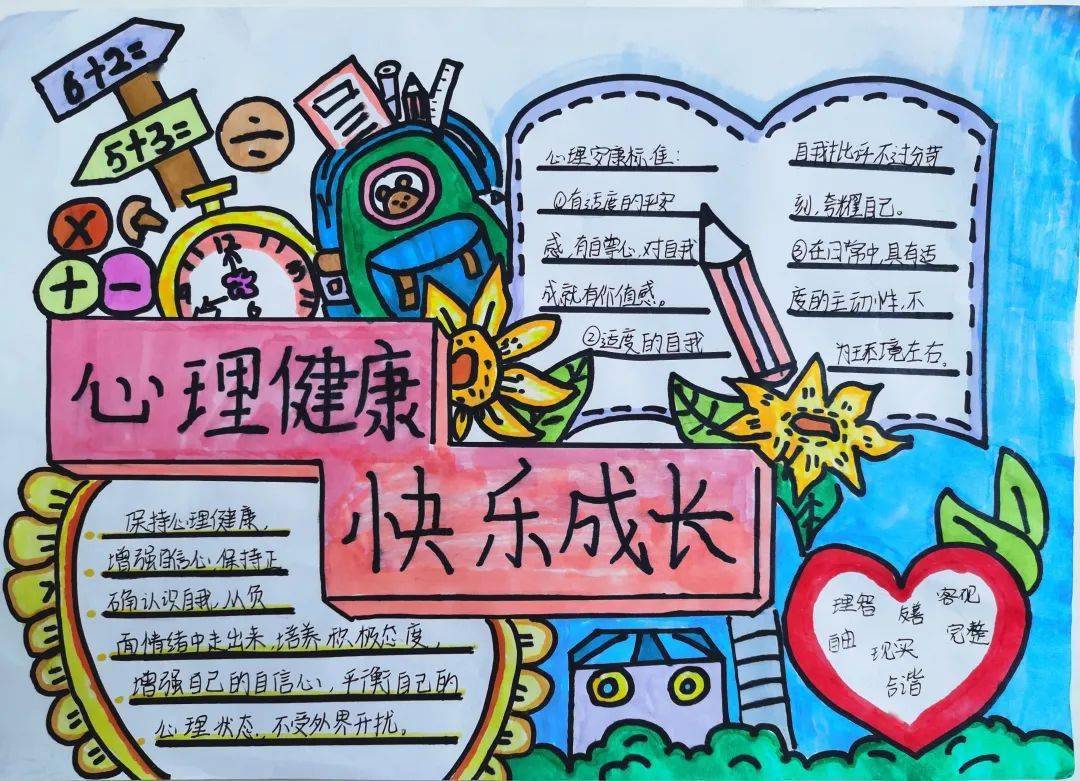 6+2=
5+3=
÷
×
+
−
心理健康
快乐成长
心理安康标准：
①有适度的平安
感，有自尊心，对自我
成就有价值感。
②适度的自我
自我批评不过分苛
刻，夸耀自己。
③在日常中，具有适
度的主动性，不
为环境左右。
保持心理健康，
增强自信心，保持正
确认识自我，从负
面情绪中走出来，培养积极态度，
增强自己的自信心，平衡自己的
心理状态，不受外界开扰。
理智 友善 客观
自由 现买 完整
合谐